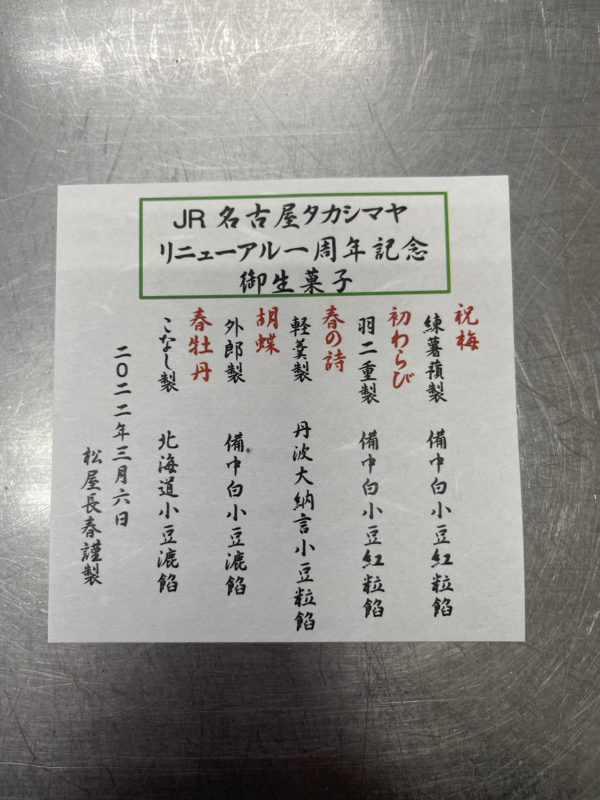 JR名古屋タカシマヤ
リニューアル一周年記念
御生菓子
祝梅
練薯蕷製　備中白小豆紅粒餡
初わらび
羽二重製　備中白小豆紅粒餡
春の詩
軽羹製　丹波大納言小豆粒餡
胡蝶
外郎製　備中白小豆漉餡
春牡丹
こなし製　北海道小豆漉餡
二〇二二年三月六日
松屋長春謹製